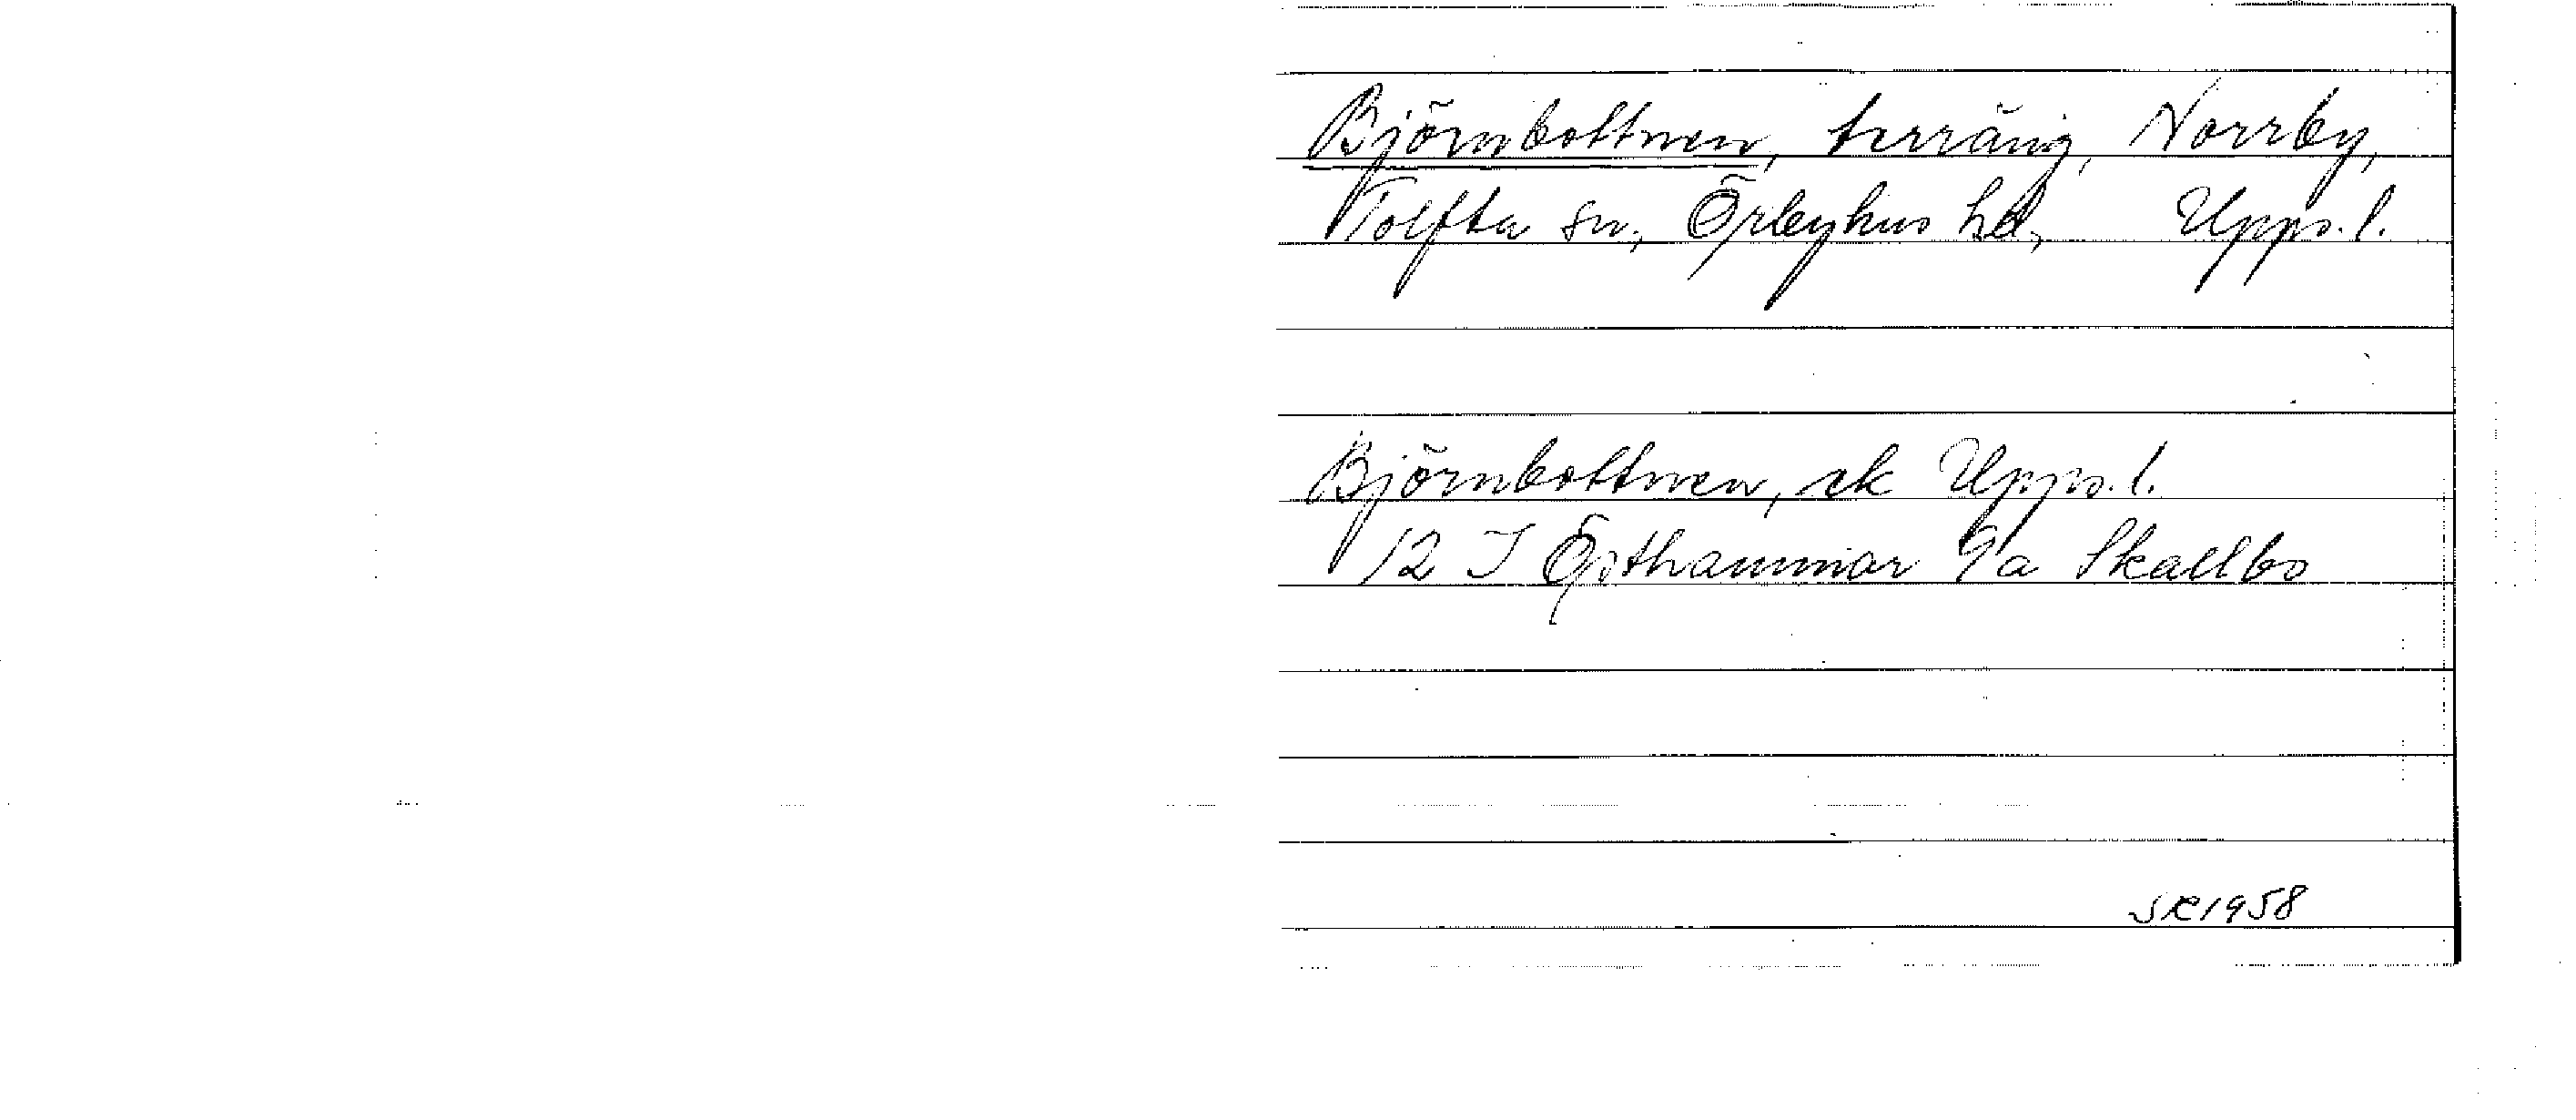 Björnbottnen, terräng, Norrby,
Tolfta sn, Örbyhus hd, Upps. l.
Björnbottnen, ek Upps. l.
12 I Östhammar 9a Skallbo
SR 1958